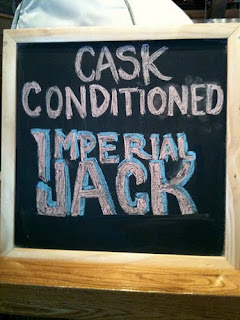 CASK
CONDITIONED
IMPERIAL
JACK